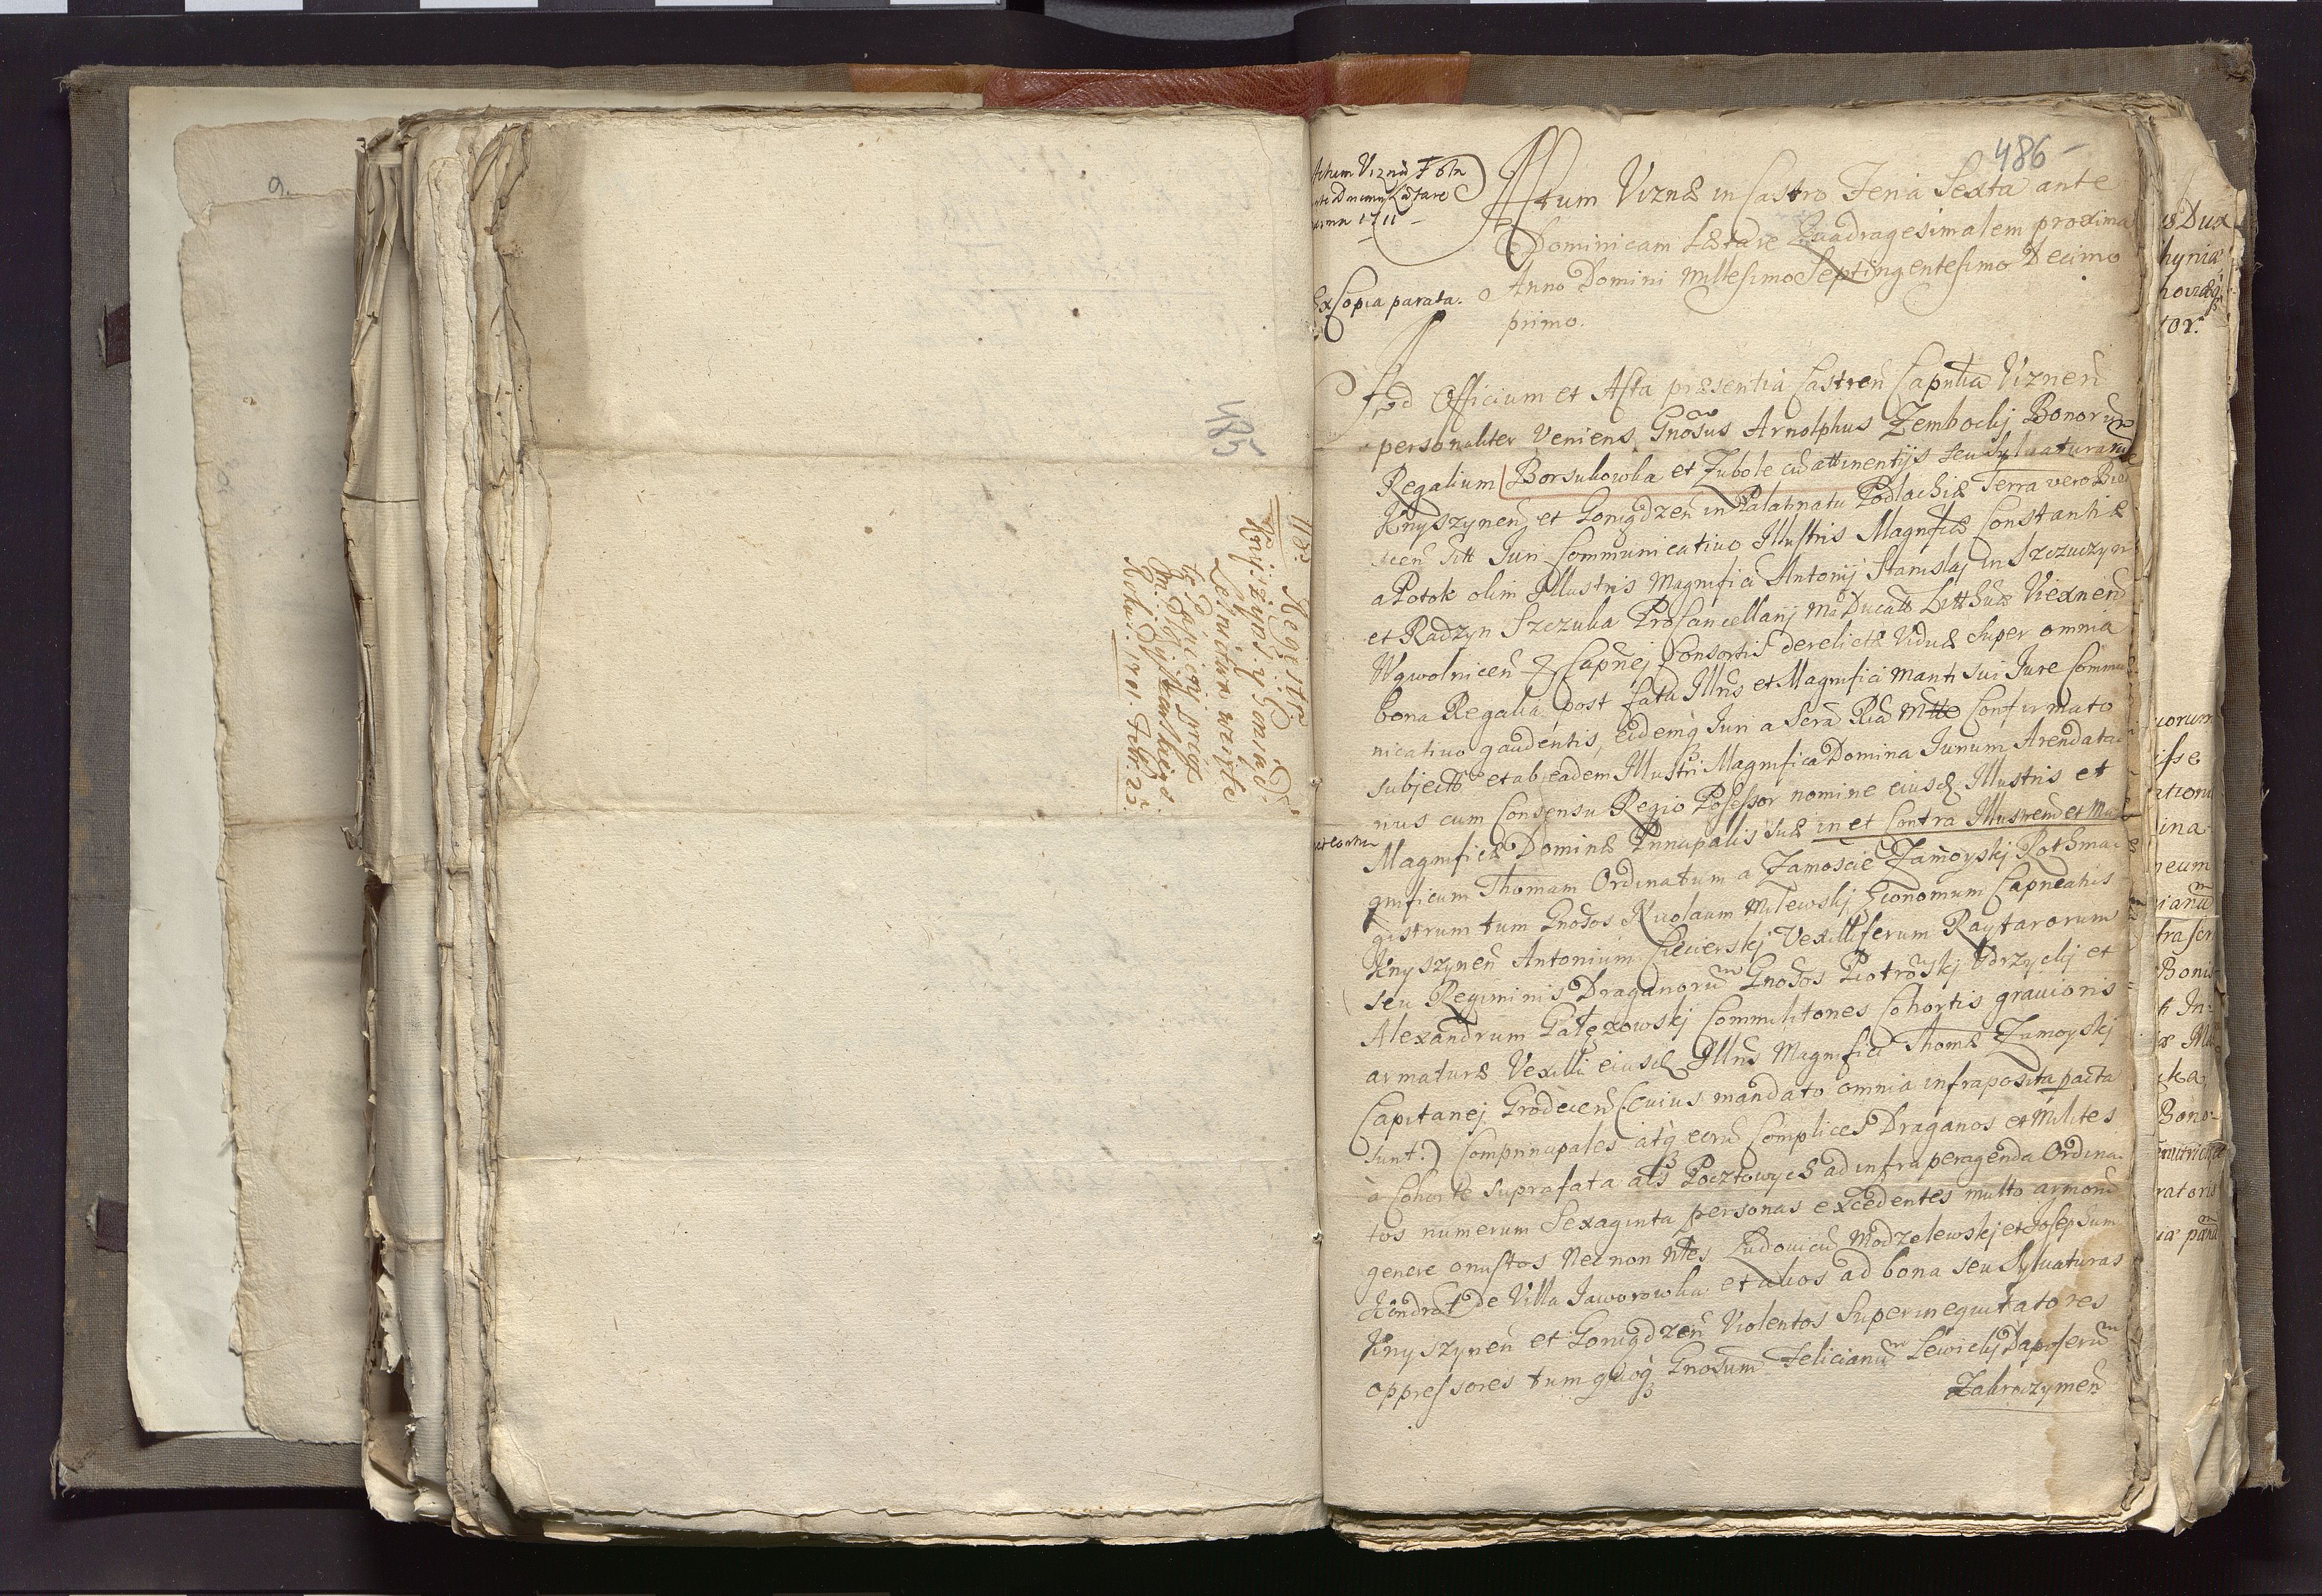 a
485
118. Regestr
Knyszyńs. y Goniądz.
Leśnictwa wzięte
486
Actum Viznæ F 6ta
ante Dnicam Lætare
anno 1711
Ex Copia parata.
Actum Viznæ in Castro Feria Sexta ante
Dominicam Lætare Quadragesimalem proxima
Anno Domini Millesimo Septingentesimo Decimo
primo.
Ad Officium et Acta præsentia Castreñ Capitlia Vizneñ
personaliter Veniens Gnosus Arnolphus Zembockj Bonorum
Regalium Borsukowka et Zubole cũ attinentijs seu Sylvaturarum
Knyszyneñ et Goniądzeñ in Palatinatu Podlachiæ Terra vero Biel
sceñ sitt Juri Communicativo Illustris Magnificæ Constantiæ
a Potok olim Illustris Magnifici Antonij Stanislaj in Szczuczyn
et Radzyn Szczuka ProCancellarij M. Ducatt Litthuæ Viexneñ
Wąwolniceñ & Capñej Consortis derelictæ Viduæ super omnia
bona Regalia post fata Illris et Magnifici Mariti sui Jure Commu
nicativo gaudentis, eidemq Juri a Sera Ria Mtte Confirmato
subjectt et ab eadem Illustri Magnifica Domina Jurium Arendata
rius cum Consensu Regio Possessor nomine eiusd Illustris et
Magnificæ Dominæ Principalis suæ in et Contra Illustrem et Ma
gnificum Thomam Ordinatum a Zamoscie Zamoyskj Rothma
gistrum tum Gnosos Nicolaum Milewskj Œconomum Capneatus
Knyszyneñ Antonium Ciecierskj Vexilliferum Raytarorum
seu Regiminis Draganorũ Gnosos Piotrowskj Udrzyckj et
Alexandrum Gałęzowskj Commilitones Cohortis gravioris
armaturæ Vexilli eiusd Illris Magnifici Thomæ Zamoyskj
Capitanej Grodeceñ (Cuius mandato omnia infraposita pacta
sunt.) Comprincipales atq eorũ Complices Draganos et Milites
à Cohorte suprafata als Pocztowych ad infra peragenda Ordina
tos numerum Sexaginta personas excedentes multo armorũ
genere onustos Nec non Nbles Ludovicũ Modzelewskj et Josephum
Kondrat de Villa Jaworowka et alios ad bona seu Sylvaturas
Knyszyneñ et Goniądzeñ Violentos Superinequitatores
oppressores tum quoq Gnosum Felicianũ Lewickj Dapiferũ
Zakroczymeñ